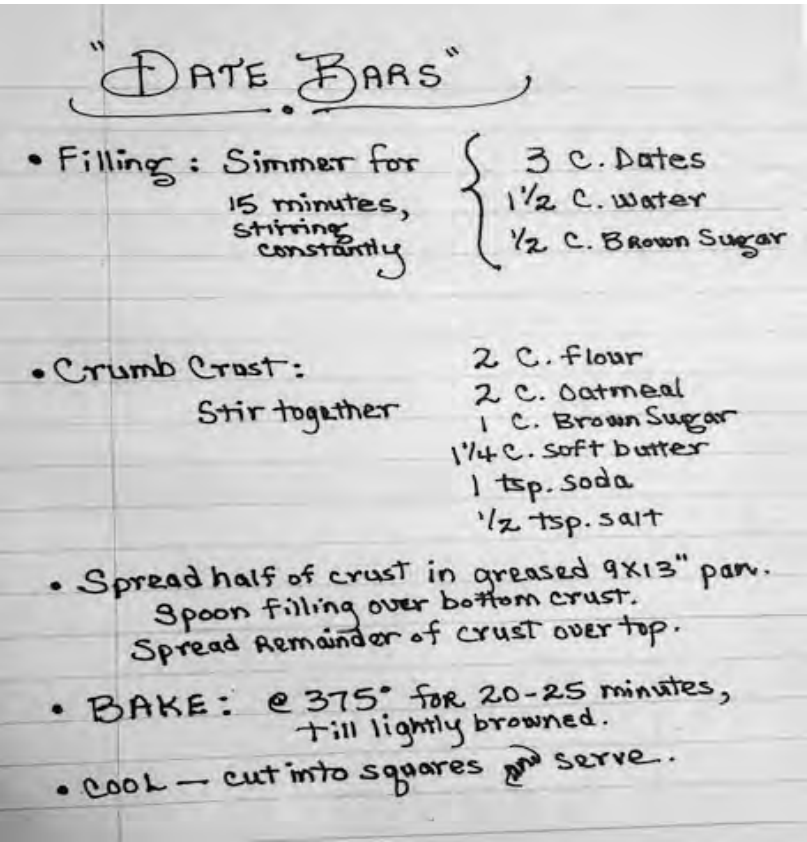 "DATE BARS"
• Filling: Simmer for
15 minutes,
stirring
constantly
3 C. Dates
1 1/2 C. water
1/2 C. Brown Sugar
• Crumb Crust:
Stir together
2 C. flour
2 C. Oatmeal
1 C. Brown Sugar
1 1/4 C. soft butter
1 tsp. soda
1/2 tsp. salt
• Spread half of crust in greased 9x13" pan.
Spoon filling over bottom crust.
Spread Remainder of crust over top.
• BAKE: @ 375° for 20-25 minutes,
till lightly browned.
• COOL — cut into squares and serve.